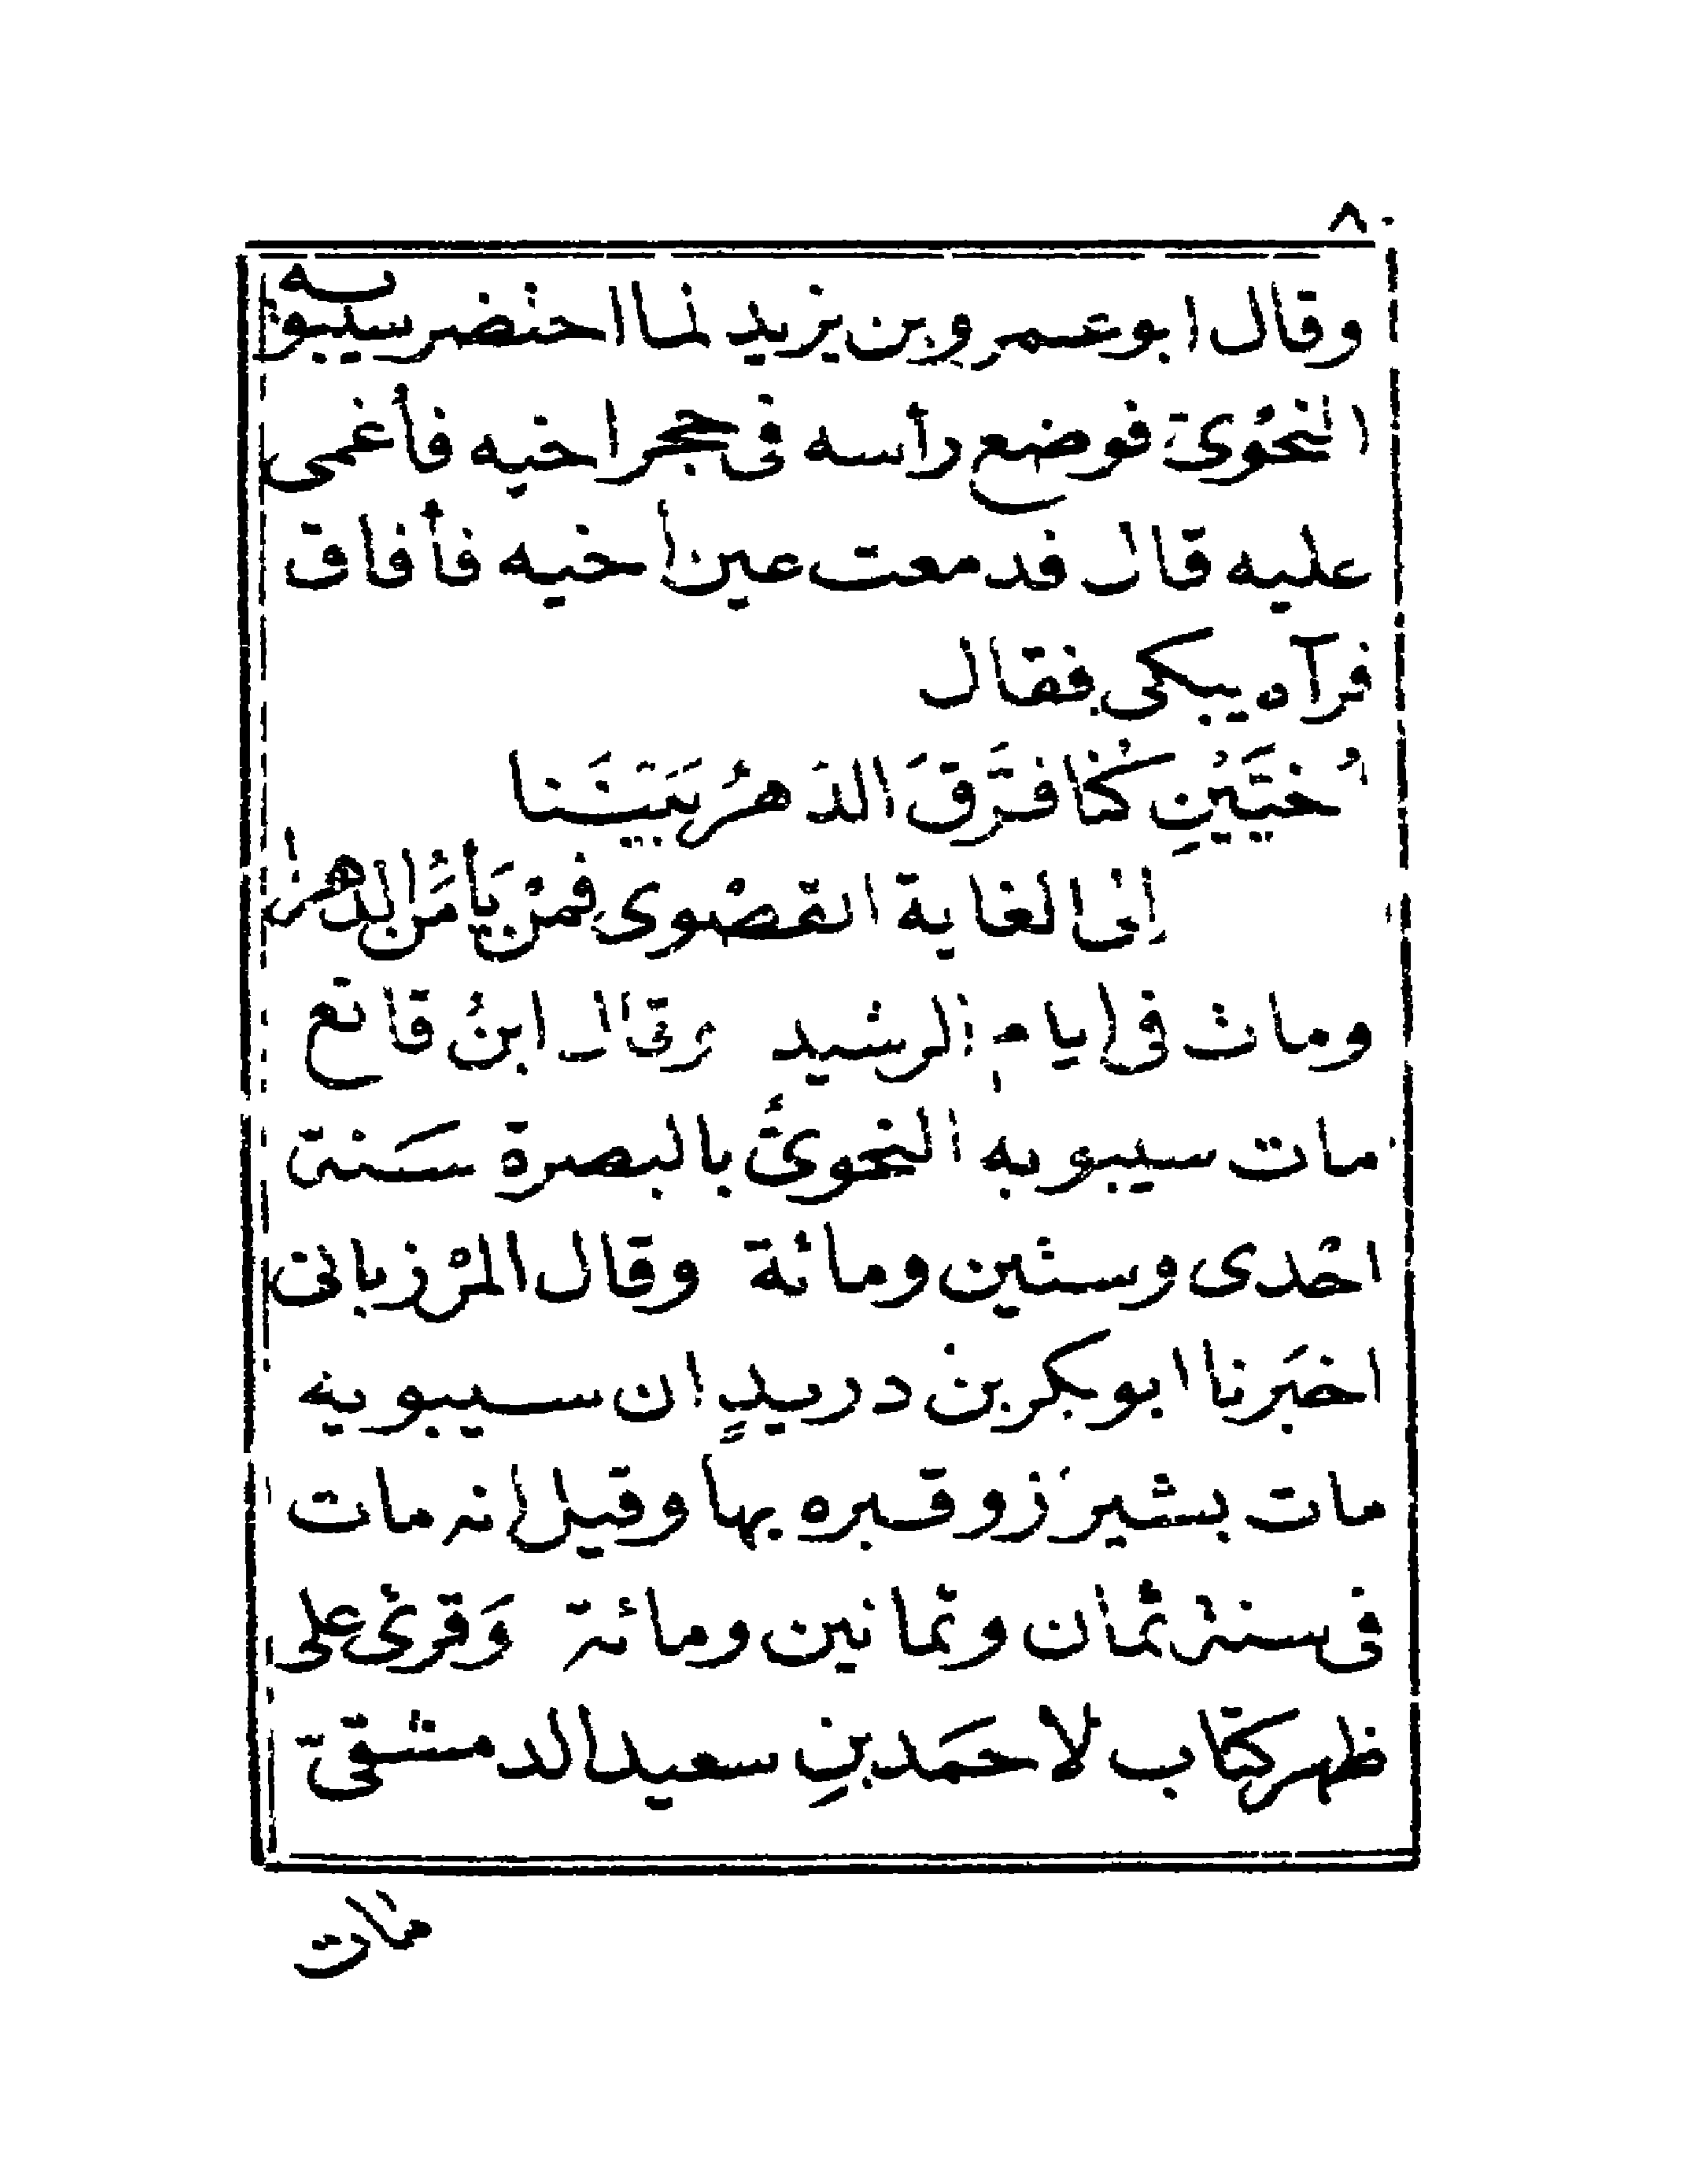 ٨٠
وقال ابو عمرو بن يزيد لما احتضر سيبويه
النحوىّ فوضع رأسه فى حجر اخيه فأغمى
عليه قال فدمعت عين أخيه فأفاق
فرآه يبكى فقال
اُخَيَّيْنِ كُنّا فَرَّقَ الدَهرُ بَيْنَنا
اِلى الغاية القصْوى فمنْ يَأمَنُ الدهرا
ومات فى ايام الرشيد وقال ابنُ قانع
مات سيبويه النحوىُّ بالبصرة سَنة
احْدى وستين ومائة وقال المرْزبانى
اخبَرنا ابو بكر بن دريدٍ ان سيبويه
مات بشيرَزو قبره بها وقيل انه مات
فى سنة ثمان وثمانين ومائة وَقرئ على
ظهر كتاب لاحمَد بنِ سعيد الدمشقىّ
مات